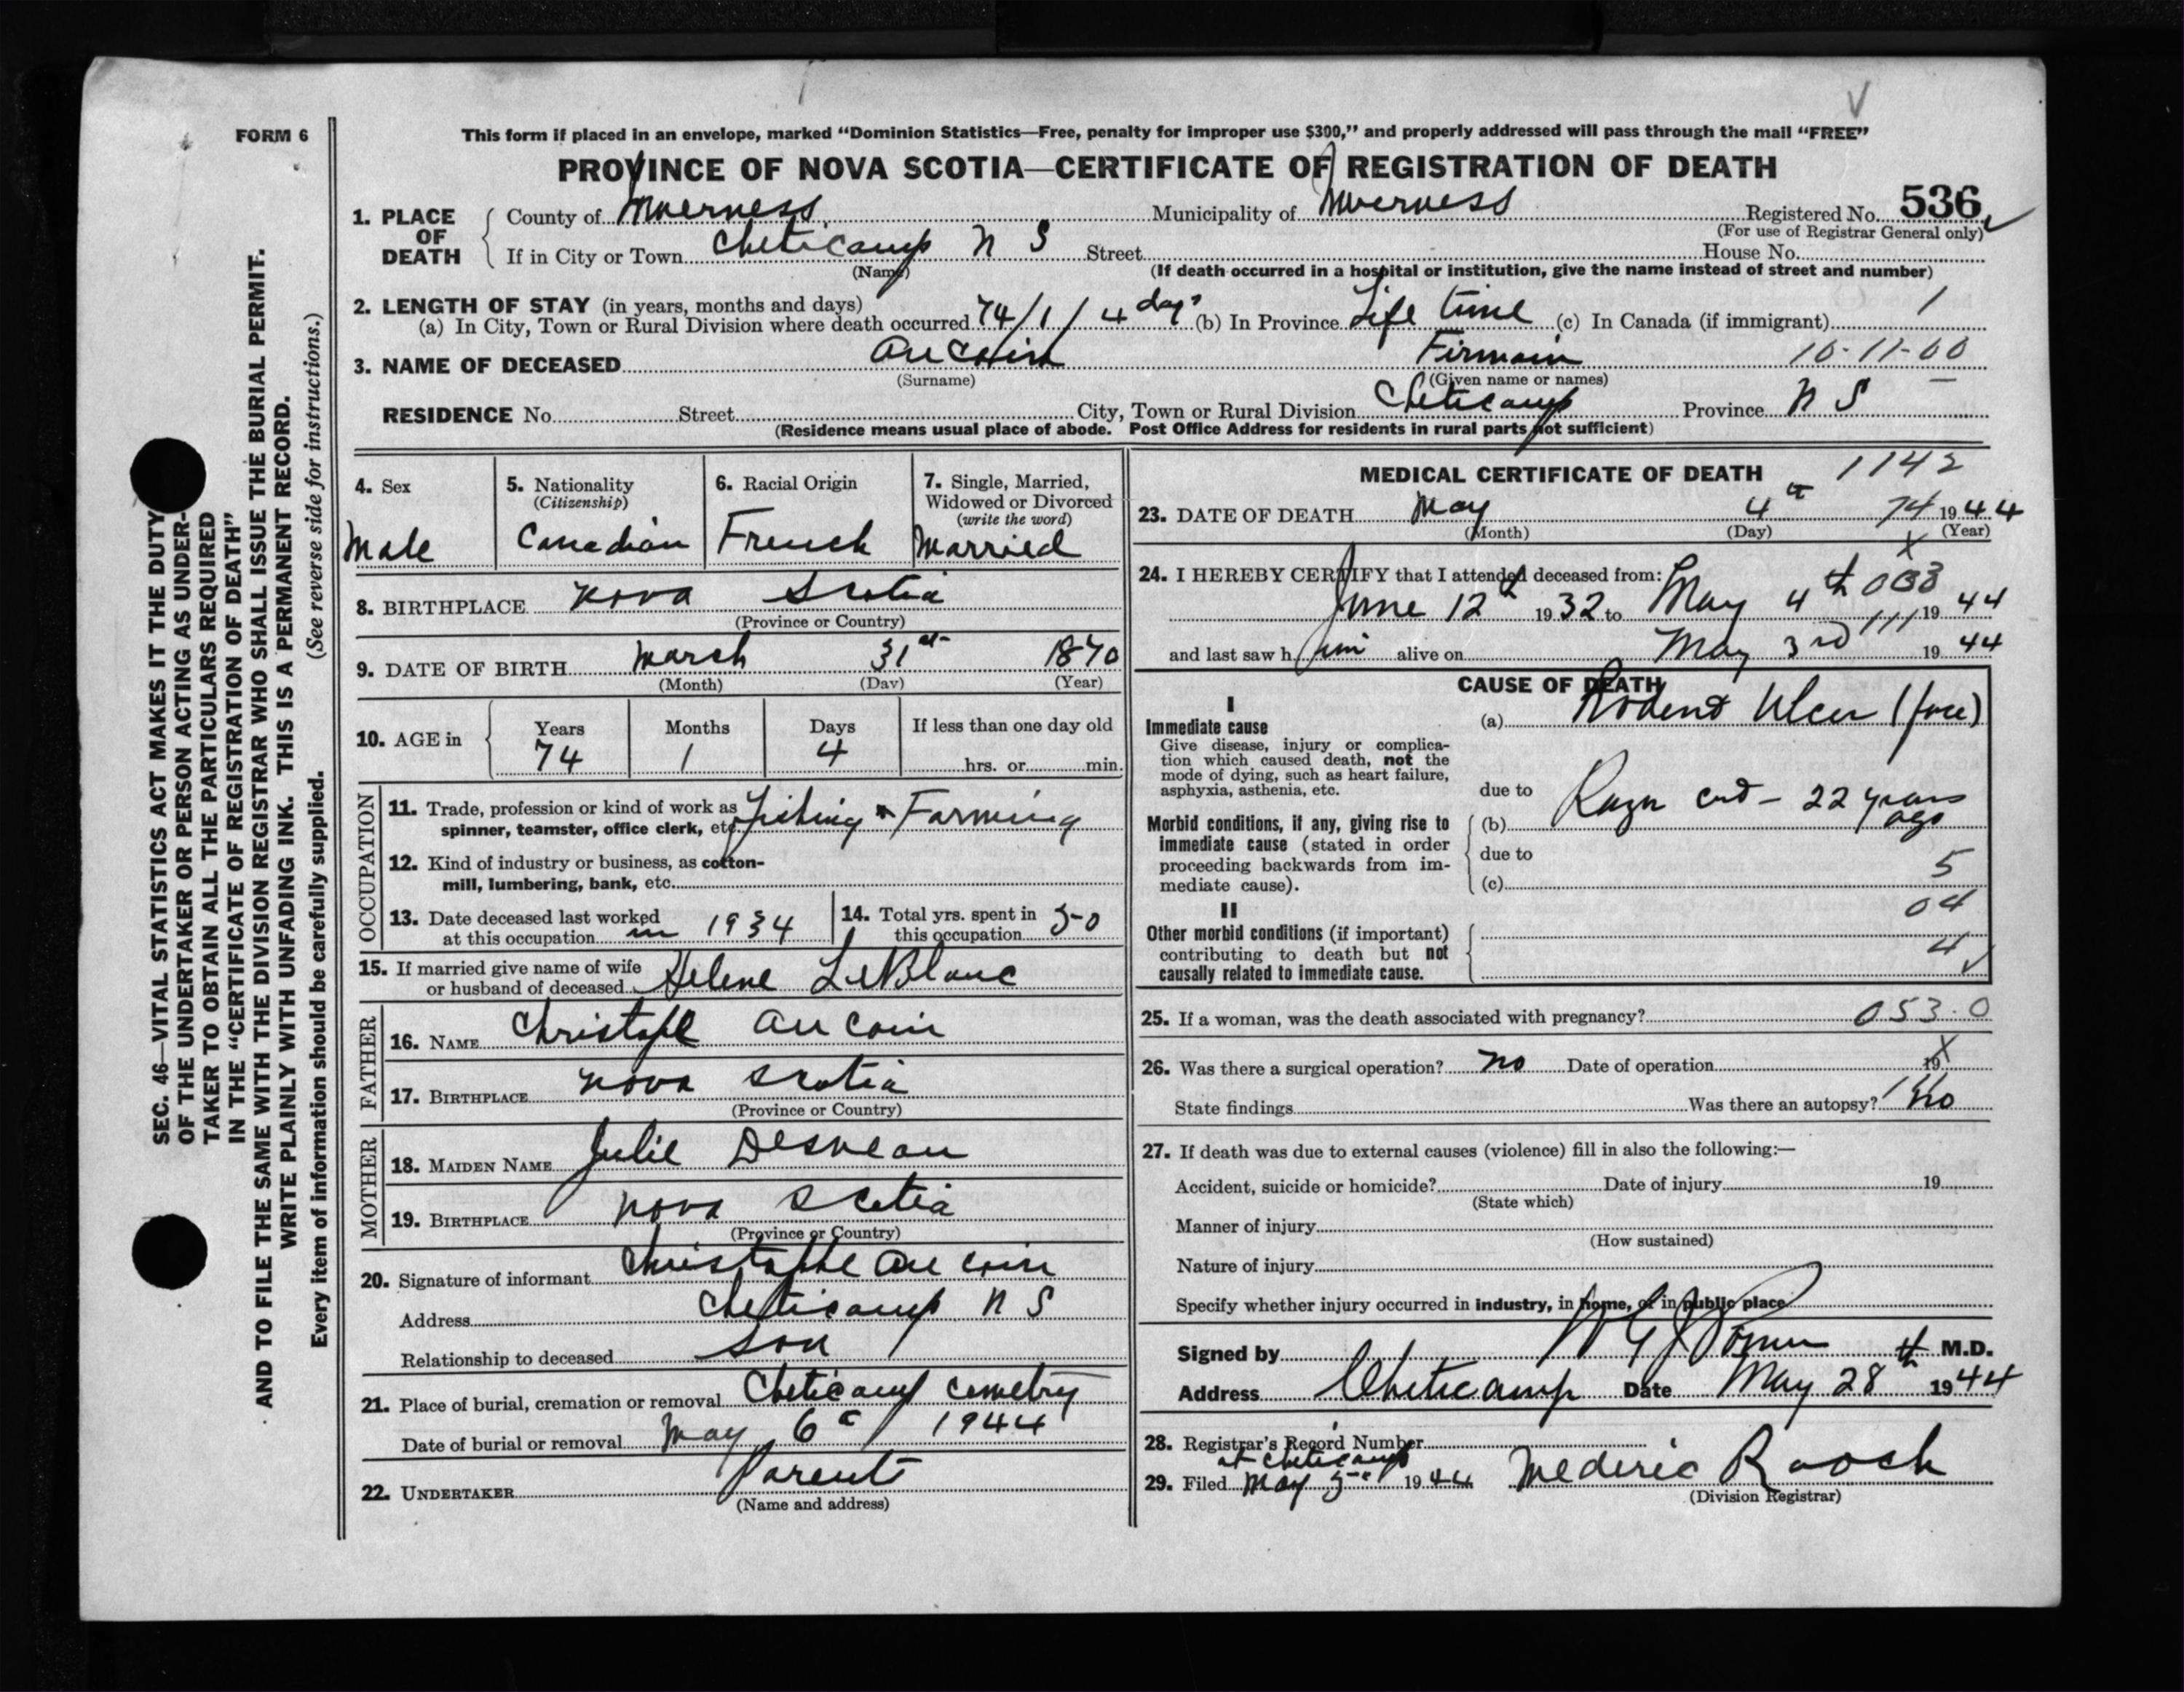 FORM 6
This form if placed in an envelope, marked “Dominion Statistics—Free, penalty for improper use $300,” and properly addressed will pass through the mail “FREE”
PROVINCE OF NOVA SCOTIA—CERTIFICATE OF REGISTRATION OF DEATH
SEC. 46—VITAL STATISTICS ACT MAKES IT THE DUTY
OF THE UNDERTAKER OR PERSON ACTING AS UNDER-
TAKER TO OBTAIN ALL THE PARTICULARS REQUIRED
IN THE “CERTIFICATE OF REGISTRATION OF DEATH”
AND TO FILE THE SAME WITH THE DIVISION REGISTRAR WHO SHALL ISSUE THE BURIAL PERMIT.
WRITE PLAINLY WITH UNFADING INK. THIS IS A PERMANENT RECORD.
Every item of information should be carefully supplied. (See reverse side for instructions.)
1. PLACE OF DEATH
County of Inverness Municipality of Inverness Registered No. 536
(For use of Registrar General only)
If in City or Town Cheticamp N S Street House No.
(Name) (If death occurred in a hospital or institution, give the name instead of street and number)
2. LENGTH OF STAY (in years, months and days)
(a) In City, Town or Rural Division where death occurred 74/1/4 days (b) In Province Life time (c) In Canada (if immigrant) 1
3. NAME OF DECEASED Au Coin Firmain 10-11-60
(Surname) (Given name or names)
RESIDENCE No. Street City, Town or Rural Division Cheticamp Province N S
(Residence means usual place of abode. Post Office Address for residents in rural parts not sufficient)
4. Sex
Male
5. Nationality
(Citizenship)
Canadian
6. Racial Origin
French
7. Single, Married,
Widowed or Divorced
(write the word)
Married
8. BIRTHPLACE Nova Scotia
(Province or Country)
9. DATE OF BIRTH March 31st 1870
(Month) (Day) (Year)
10. AGE in
Years Months Days If less than one day old
74 1 4 hrs. or min.
OCCUPATION
11. Trade, profession or kind of work as
spinner, teamster, office clerk, etc. Fishing & Farming
12. Kind of industry or business, as cotton-
mill, lumbering, bank, etc.
13. Date deceased last worked
at this occupation in 1934
14. Total yrs. spent in
this occupation 50
15. If married give name of wife
or husband of deceased Helene LeBlanc
FATHER
16. NAME Christofe Au Coin
17. BIRTHPLACE Nova Scotia
(Province or Country)
MOTHER
18. MAIDEN NAME Julie Desveau
19. BIRTHPLACE Nova Scotia
(Province or Country)
20. Signature of informant Christophe Au Coin
Address Cheticamp N S
Relationship to deceased Son
21. Place of burial, cremation or removal Cheticamp cemetry
Date of burial or removal May 6 1944
22. UNDERTAKER Parents
(Name and address)
MEDICAL CERTIFICATE OF DEATH 1142
23. DATE OF DEATH May 4th 74 1944
(Month) (Day) (Year)
24. I HEREBY CERTIFY that I attended deceased from:
June 12th 1932 to May 4th 1944
033
111
and last saw him alive on May 3rd 1944
CAUSE OF DEATH
I
Immediate cause
Give disease, injury or complica-
tion which caused death, not the
mode of dying, such as heart failure,
asphyxia, asthenia, etc.
(a) Rodent Ulcer (face)
due to
Morbid conditions, if any, giving rise to
immediate cause (stated in order
proceeding backwards from im-
mediate cause).
(b) Razor cut - 22 years ago
due to
(c) 5
II
Other morbid conditions (if important)
contributing to death but not
causally related to immediate cause.
04
4
25. If a woman, was the death associated with pregnancy? 053.0
26. Was there a surgical operation? No Date of operation 19 X
State findings Was there an autopsy? No
27. If death was due to external causes (violence) fill in also the following:—
Accident, suicide or homicide? Date of injury 19
(State which)
Manner of injury
(How sustained)
Nature of injury
Specify whether injury occurred in industry, in home, or in public place
Signed by M.D.
Address Cheticamp Date May 28th 1944
28. Registrar's Record Number
at Cheticamp
29. Filed May 5 1944 Mederic Roach
(Division Registrar)